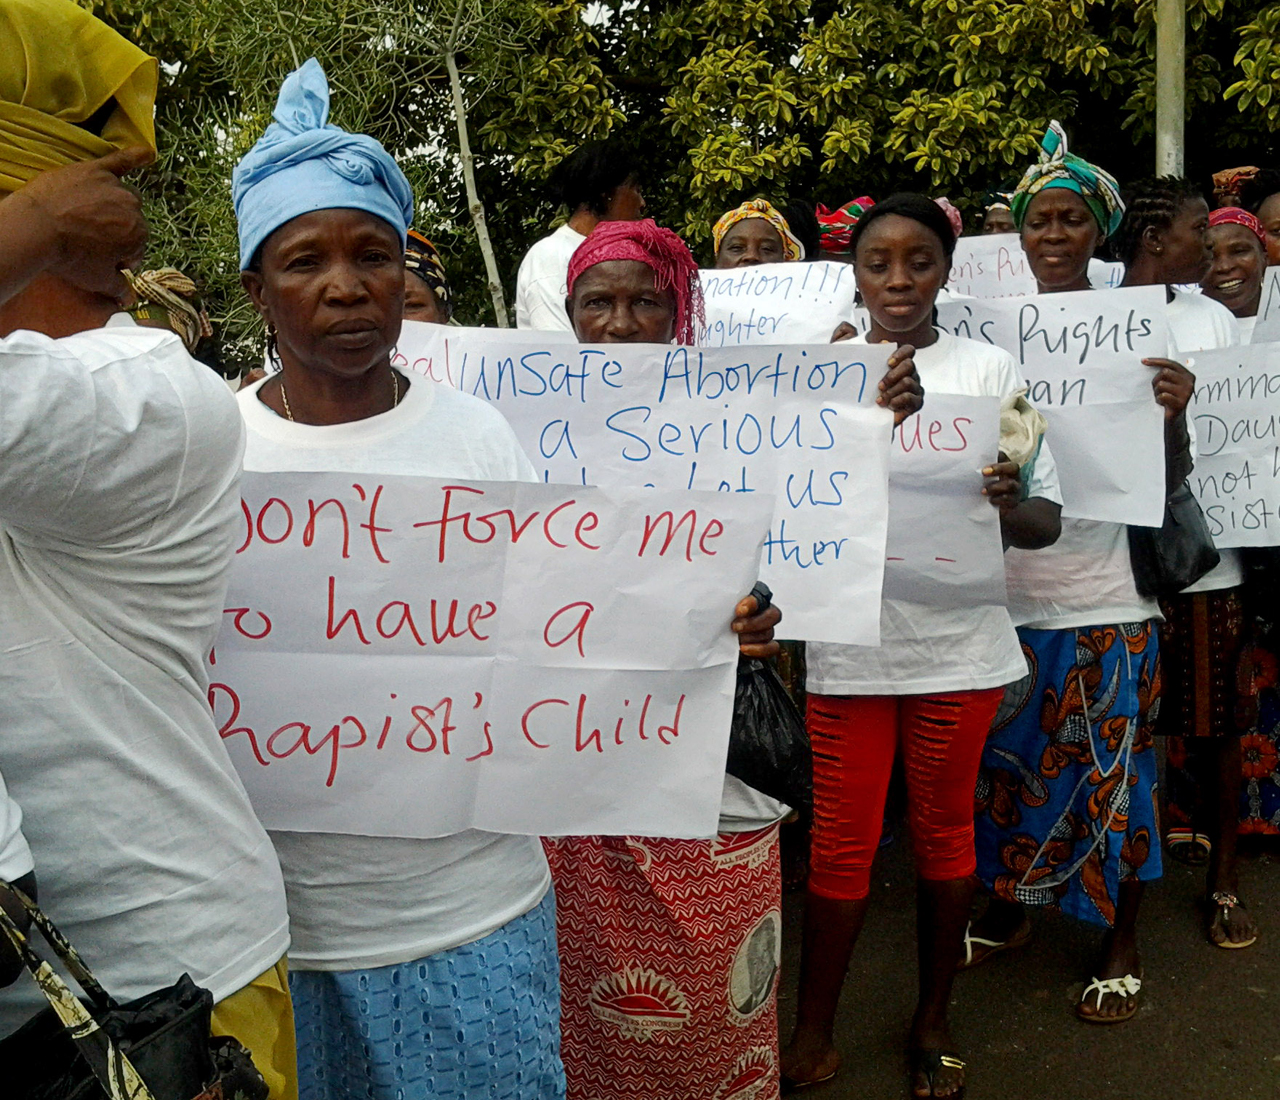 Don't force me
To have a
Rapist's Child
unsafe Abortion
a Serious
let us
ther
nation!!!
aughter
en's Ri
en's Rights
an
ues
- -
rmina
Dau
not
sist
ALL PEOPLES CONGRESS
A P C
ALL PEOPLES CON
A P C